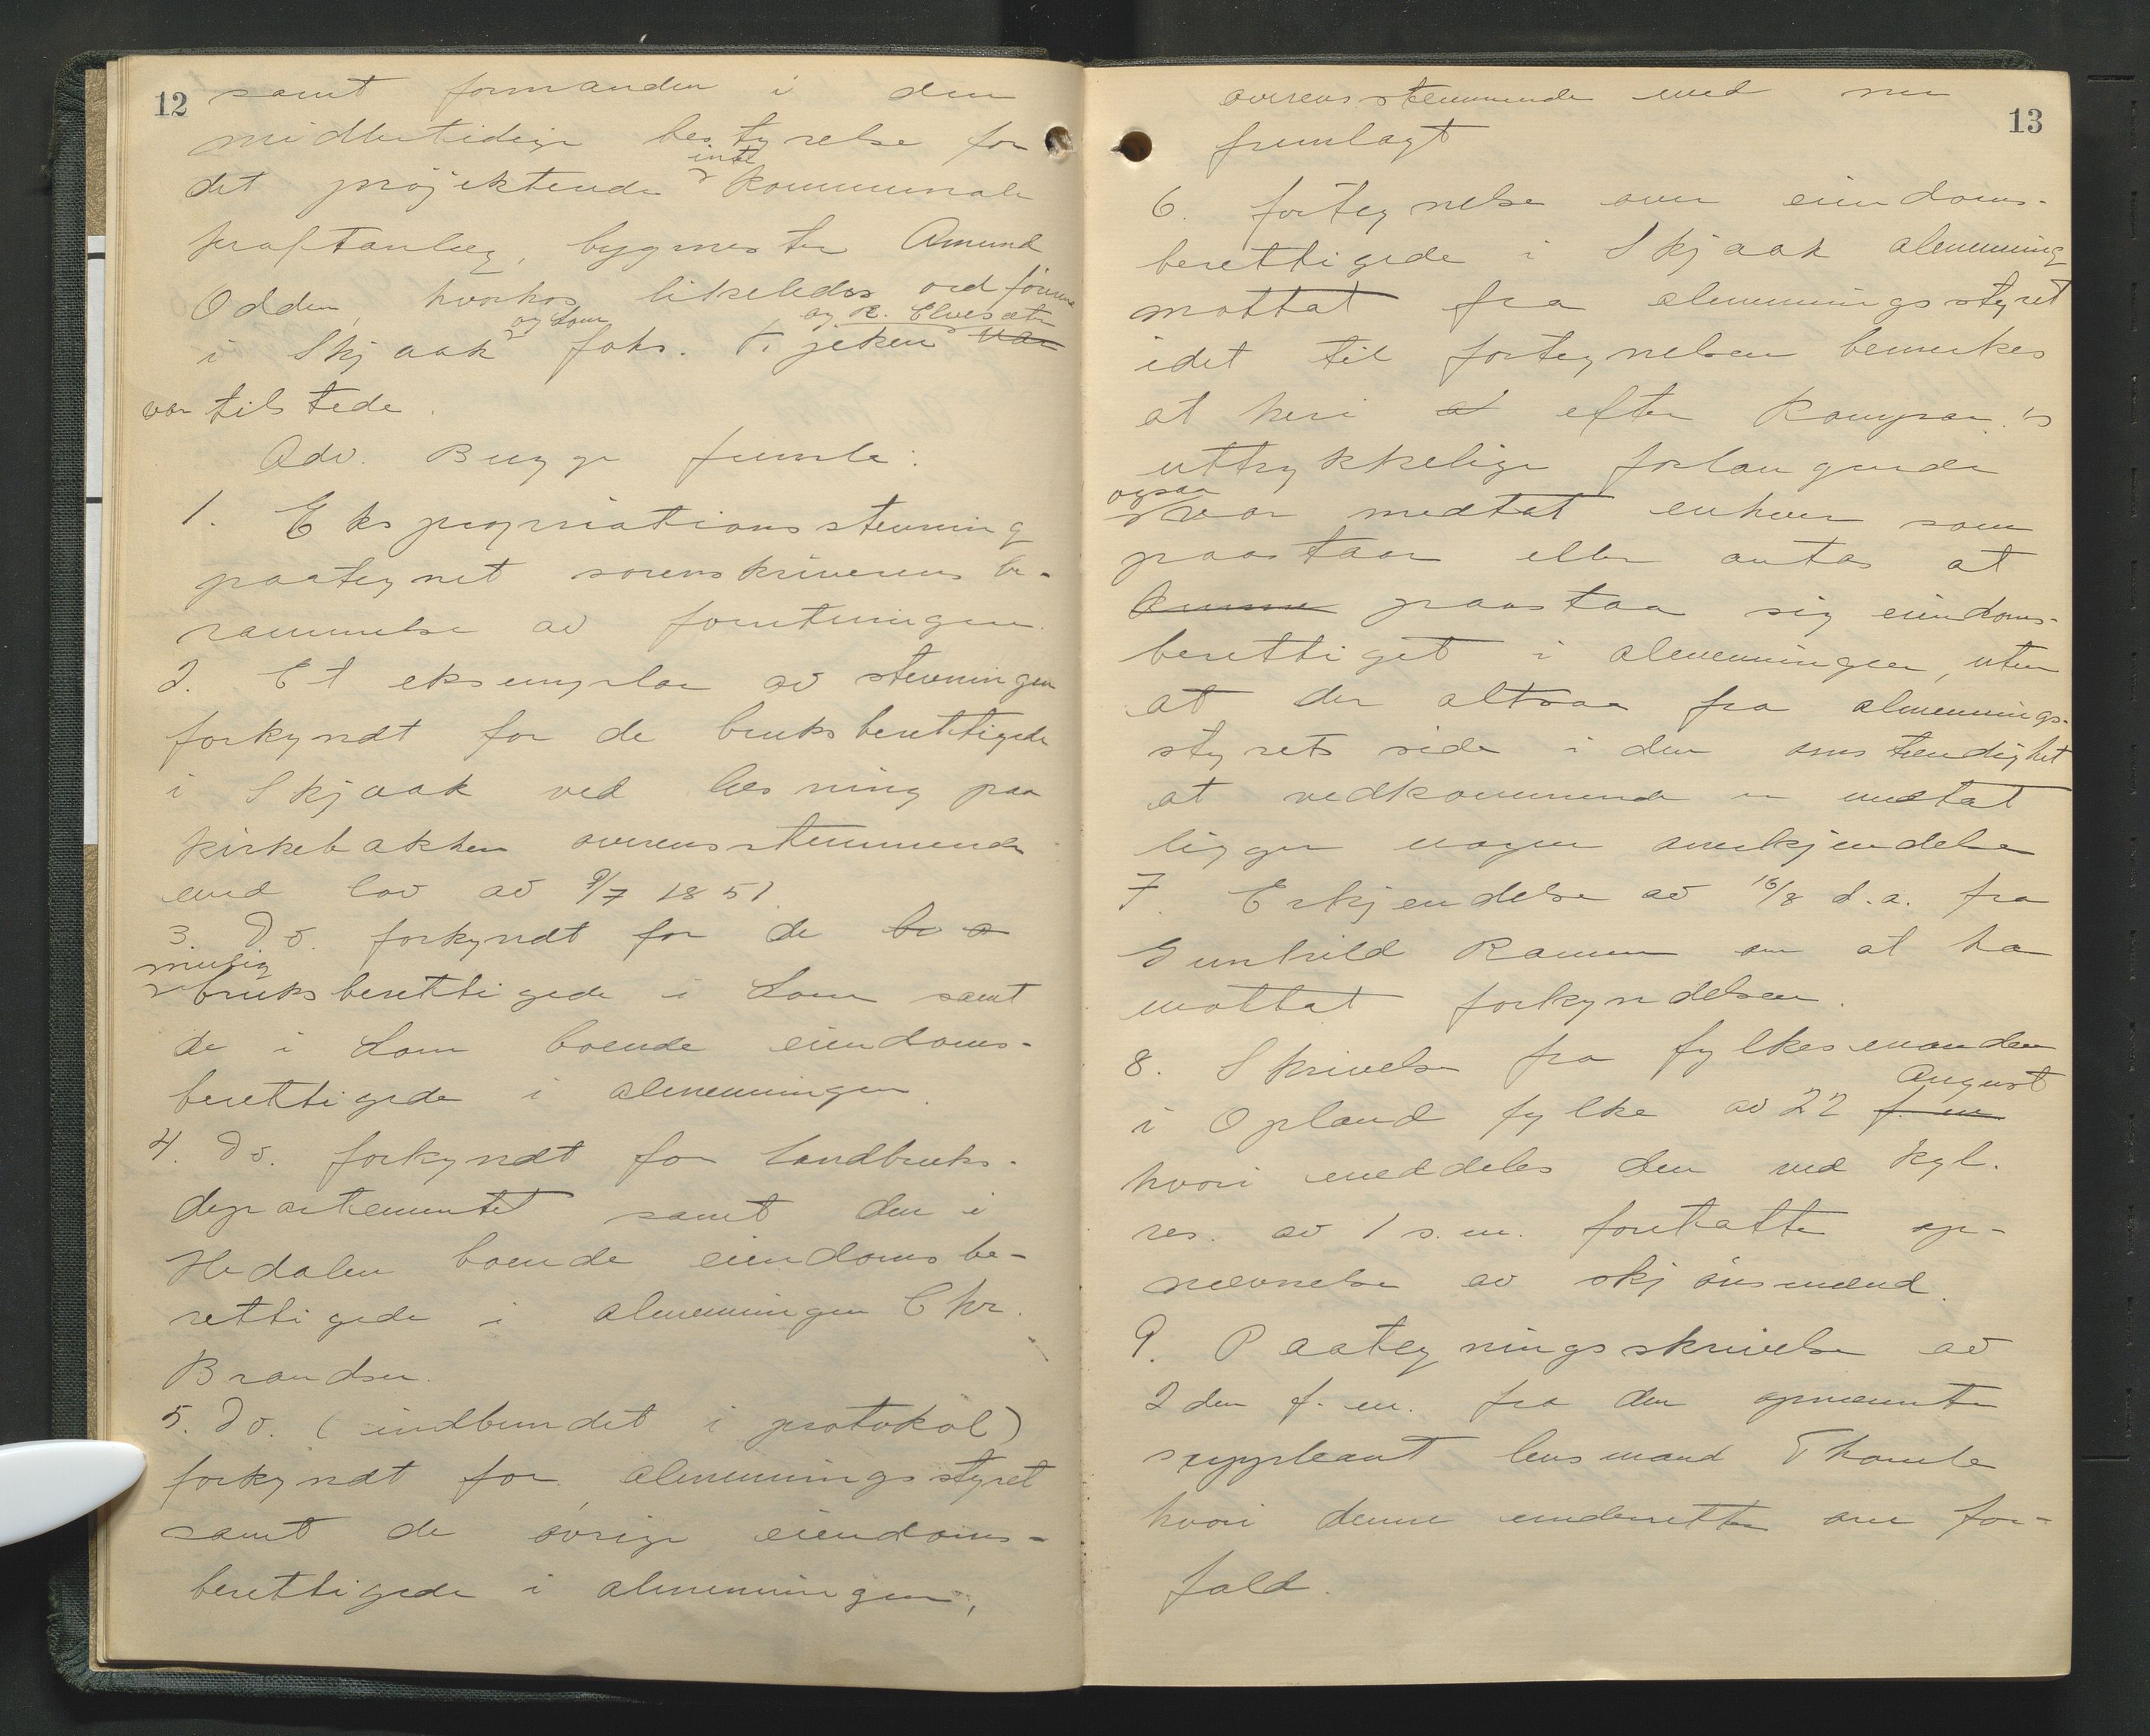 12
samt formanden i den
midlertidige bestyrelse for
det projekterede inter kommunale
kraftanlæg, bygmester Amund
Odden, hvorhos likeledes ordförerne
i Skjaak og Lom foks. T. jeken og R. Elvesæter var
var tilstede.
Adv. Bugge fremla:
1. Ekspropriationsstevning
paategnet sorenskriverens be-
rammelse av forretningen.
2. Et eksemplar av stevningen
forkyndt for de bruksberettigede
i Skjaak ved læsning paa
kirkebakken overensstemmende
med lov av 9/7 1851.
3. Do. forkyndt for de
mulig bruksberettigede i Lom samt
de i Lom boende eiendoms-
berettigede i almenningen.
4. Do. forkyndt for landbruks-
departementet samt den i
Hedalen boende eiendomsbe-
rettigede i almenningen Chr.
Brandsen.
5. Do. (indbundet i protokol)
forkyndt for almenningsstyret
samt de övrige eiendoms-
berettigede i almenningen,
13
overensstemmende med
fremlagt
6. fortegnelse over eiendoms-
berettigede i Skjaak almenning
mottat fra almenningsstyret
idet til fortegnelsen bemerkes
at heri efter Kompar.'s
uttrykkelige forlangende
ogsaa var medtat enhver som
paastaar eller antas at
kunne paastaa sig eiendoms-
berettiget i almenningen, uten
at der altsaa fra almennings-
styrets side i den omstendighet
at vedkommende er medtat
ligger nogen anerkjendelse
7. Erkjendelse av 16/8 d.a. fra
Gunhild Ramen om at ha
mottat forkyndelsen.
8. Skrivelse fra fylkesmanden
i Opland fylke av 22 f. m. August
hvori meddeles den ved kgl.
res. av 1 s.m. foretatte op-
nævnelse av skjönsmænd.
9. Paategningsskrivelse av
2den f.m. fra den opnævnte
suppleant lensmand Thamle
hvori denne underretter om for-
fald.